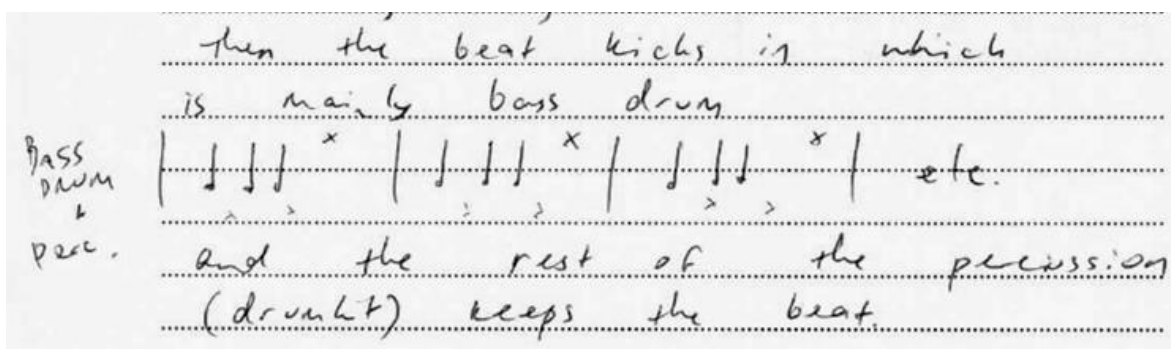 then the beat kicks in which
is mainly bass drum
BASS
DRUM
+
perc.
etc.
and the rest of the percussion
(drumkit) keeps the beat.